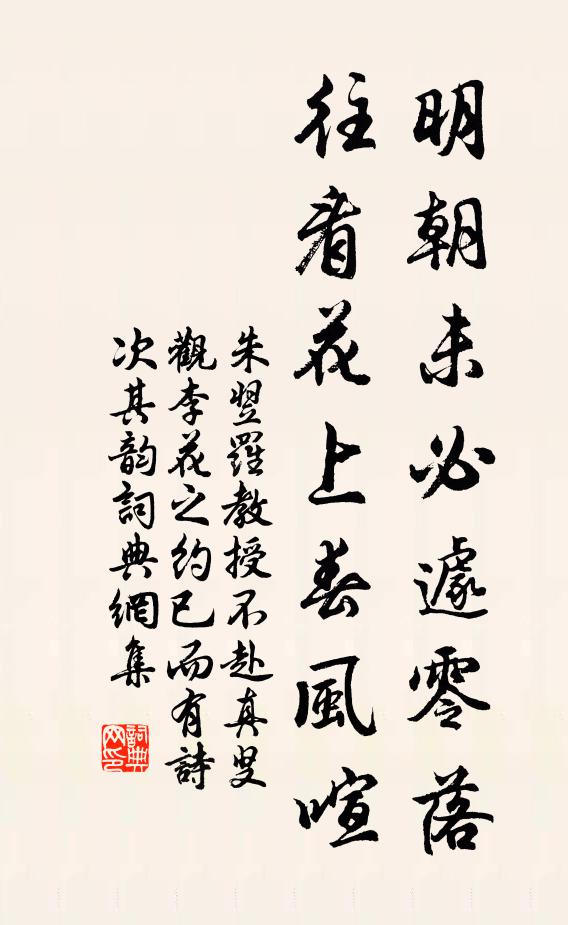 明朝未必遽零落
往看花上春風喧
朱翌羅教授不赴真叟
觀李花之約已而有詩
次其韵詞典網集
詞典網印